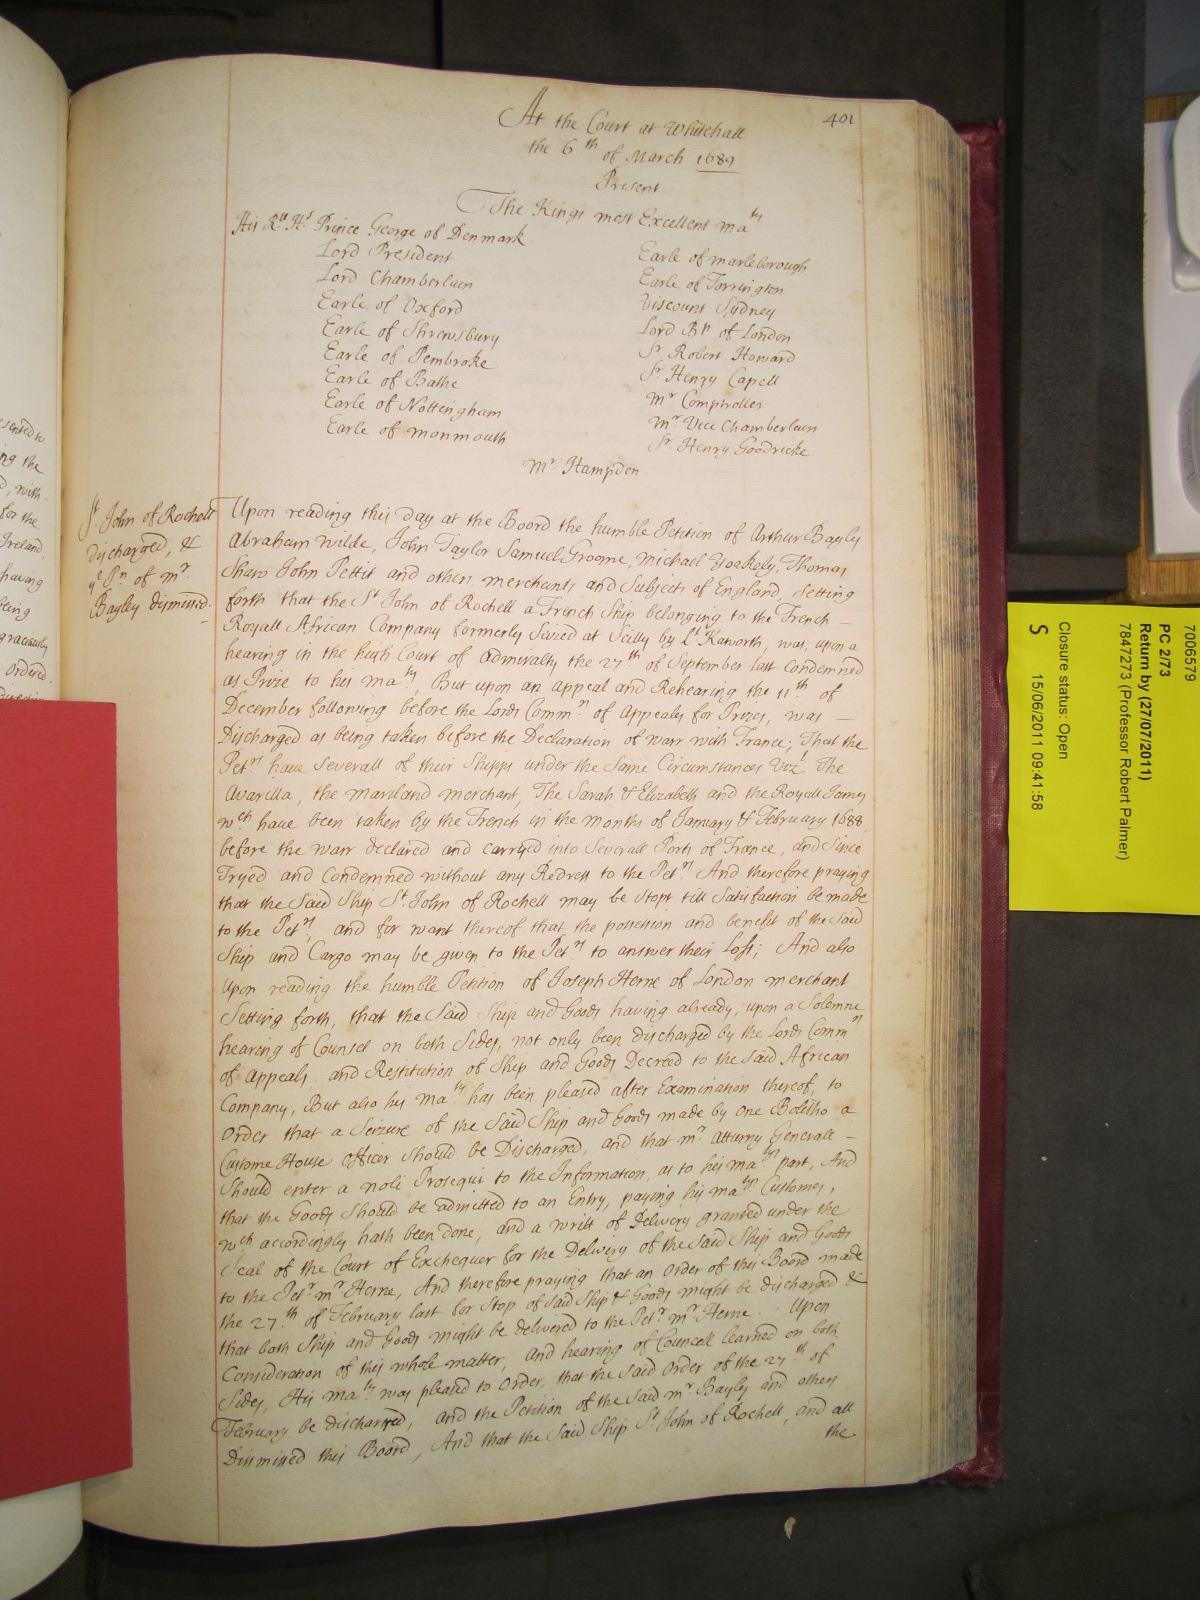 401
At the Court at Whitehall
the 6th of March 1689
Present
The Kings most Excellent Maty
His Rll Hs Prince George of Denmark
Lord President
Lord Chamberlain
Earle of Oxford
Earle of Shrewsbury
Earle of Pembroke
Earle of Bathe
Earle of Nottingham
Earle of Monmouth
Earle of Marleborough
Earle of Torrington
Viscount Sydney
Lord Bp of London
Sr Robert Howard
Sr Henry Capell
Mr Comptroller
Mr Vice Chamberlain
Sr Henry Goodricke
Mr Hampden
St John of Rochell
discharged, &
ye Pn of Mr
Bayley dismissd.
Upon reading this day at the Board the humble Petition of Arthur Bayley
Abraham Wilde, John Taylor Samuel Groome, Michael Yoakely, Thomas
Shaw John Pettit and others, Merchants and Subjects of England, Setting
forth that the St John of Rochell a French Ship belonging to the French —
Royall African Company formerly Seized at Scilly by Lt Haworth, was, upon a
hearing in the high Court of Admiralty the 27th of September last Condemned
as Prize to his Maty, But upon an Appeal and Rehearing the 11th of
December following before the Lords Commrs of Appeales for Prizes, was —
Discharged as being taken before the Declaration of Warr with France; That the
Petrs have Severall of their Shipps under the Same Circumstances Vizt The
Avarilla, the Mariland Merchant, The Sarah & Elizabeth and the Royall James
wch have been taken by the French in the Months of January & February 1688
before the Warr declared and carryed into Severall Ports of France, and Since
Tryed and Condemned without any Redress to the Petrs And therefore praying
that the Said Ship St John of Rochell may be Stopt till Satisfaction be made
to the Petrs, and for want thereof that the possession and benefit of the Said
Ship and Cargo may be given to the Petrs to answer their Loss; And also
Upon reading the humble Petition of Joseph Herne of London Merchant
Setting forth, that the Said Ship and Goods having already, upon a Solemne
hearing of Counsel on both Sides, not only been discharged by the Lords Commrs
of Appeals, and Restitution of Ship and Goods Decreed to the Said African
Company, But also his Maty has been pleased after Examination thereof, to
Order that a Seizure of the Said Ship and Goods made by one Bolitho a
Custome House Officer should be Discharged, and that Mr Atturny Generall —
Should enter a Noli Prosequi to the Information, as to his Matys part, And
that the Goods Should be admitted to an Entry, paying his Matys Customes,
wch accordingly hath been done, and a Writt of Delivery granted under the
Seal of the Court of Exchequer for the Delivery of the Said Ship and Goods
to the Petr Mr Herne, And therefore praying that an Order of this Board made
the 27th of February last for Stop of Said Ship & Goods might be discharged &
that both Ship and Goods might be delivered to the Petr Mr Herne. Upon
Consideration of this whole matter, and hearing of Councell learned on both
Sides, His Maty was pleased to Order, that the Said Order of the 27th of
February be discharged, and the Petition of the Said Mr Bayley and others
Dismissed this Board, And that the Said Ship St John of Rochell, and all
the
sented to
ng the
with
for the
Ireland,
having
being
graciously
Ordered
7006579
PC 2/73
Return by (27/07/2011)
7847273 (Professor Robert Palmer)
Closure status: Open
15/06/2011 09:41:58
S